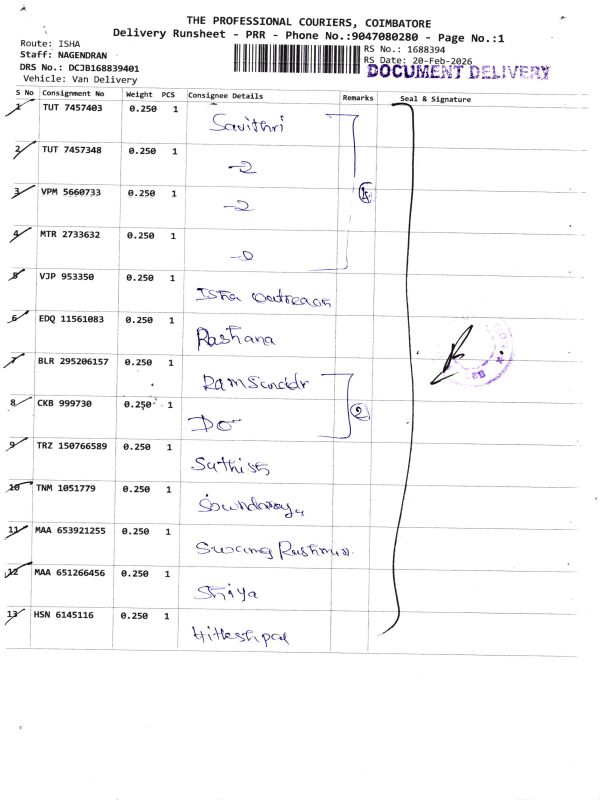 THE PROFESSIONAL COURIERS, COIMBATORE
Delivery Runsheet - PRR - Phone No.:9047080280 - Page No.:1
Route: ISHA
Staff: NAGENDRAN
DRS No.: DCJB168839401
Vehicle: Van Delivery
RS No.: 1688394
RS Date: 20-Feb-2026
DOCUMENT DELIVERY
S No Consignment No Weight PCS Consignee Details Remarks Seal & Signature
1 TUT 7457403 0.250 1 Savithri
2 TUT 7457348 0.250 1
3 VPM 5660733 0.250 1
4 MTR 2733632 0.250 1
5 VJP 953350 0.250 1 Isha Outreach
6 EDQ 11561083 0.250 1 Rashana
7 BLR 295206157 0.250 1
8 CKB 999730 0.250 1 Do 2
9 TRZ 150766589 0.250 1 Sathish
10 TNM 1051779 0.250 1 Soundarya
11 MAA 653921255 0.250 1
12 MAA 651266456 0.250 1 Shiya
13 HSN 6145116 0.250 1